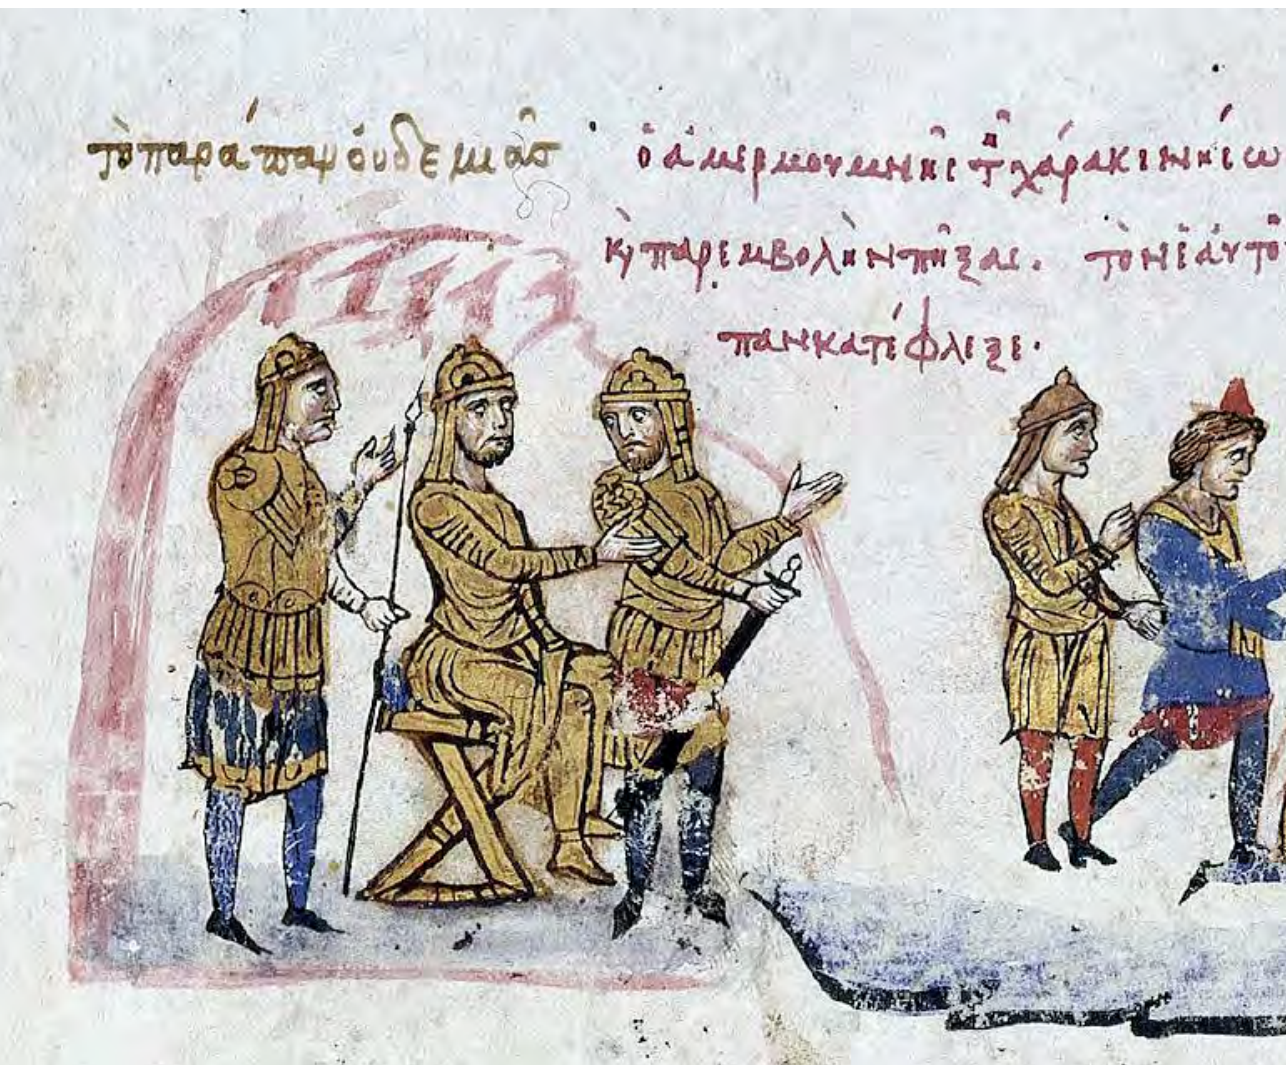 τὸ παράπαν ὀυδεμιᾶσ
ὁ ἀμερμουμνῆς χάρακι
κ̀ παρεμβολὴν πῆξαι. τὸν ἑαυτοῦ
παν κατέφλεξε.